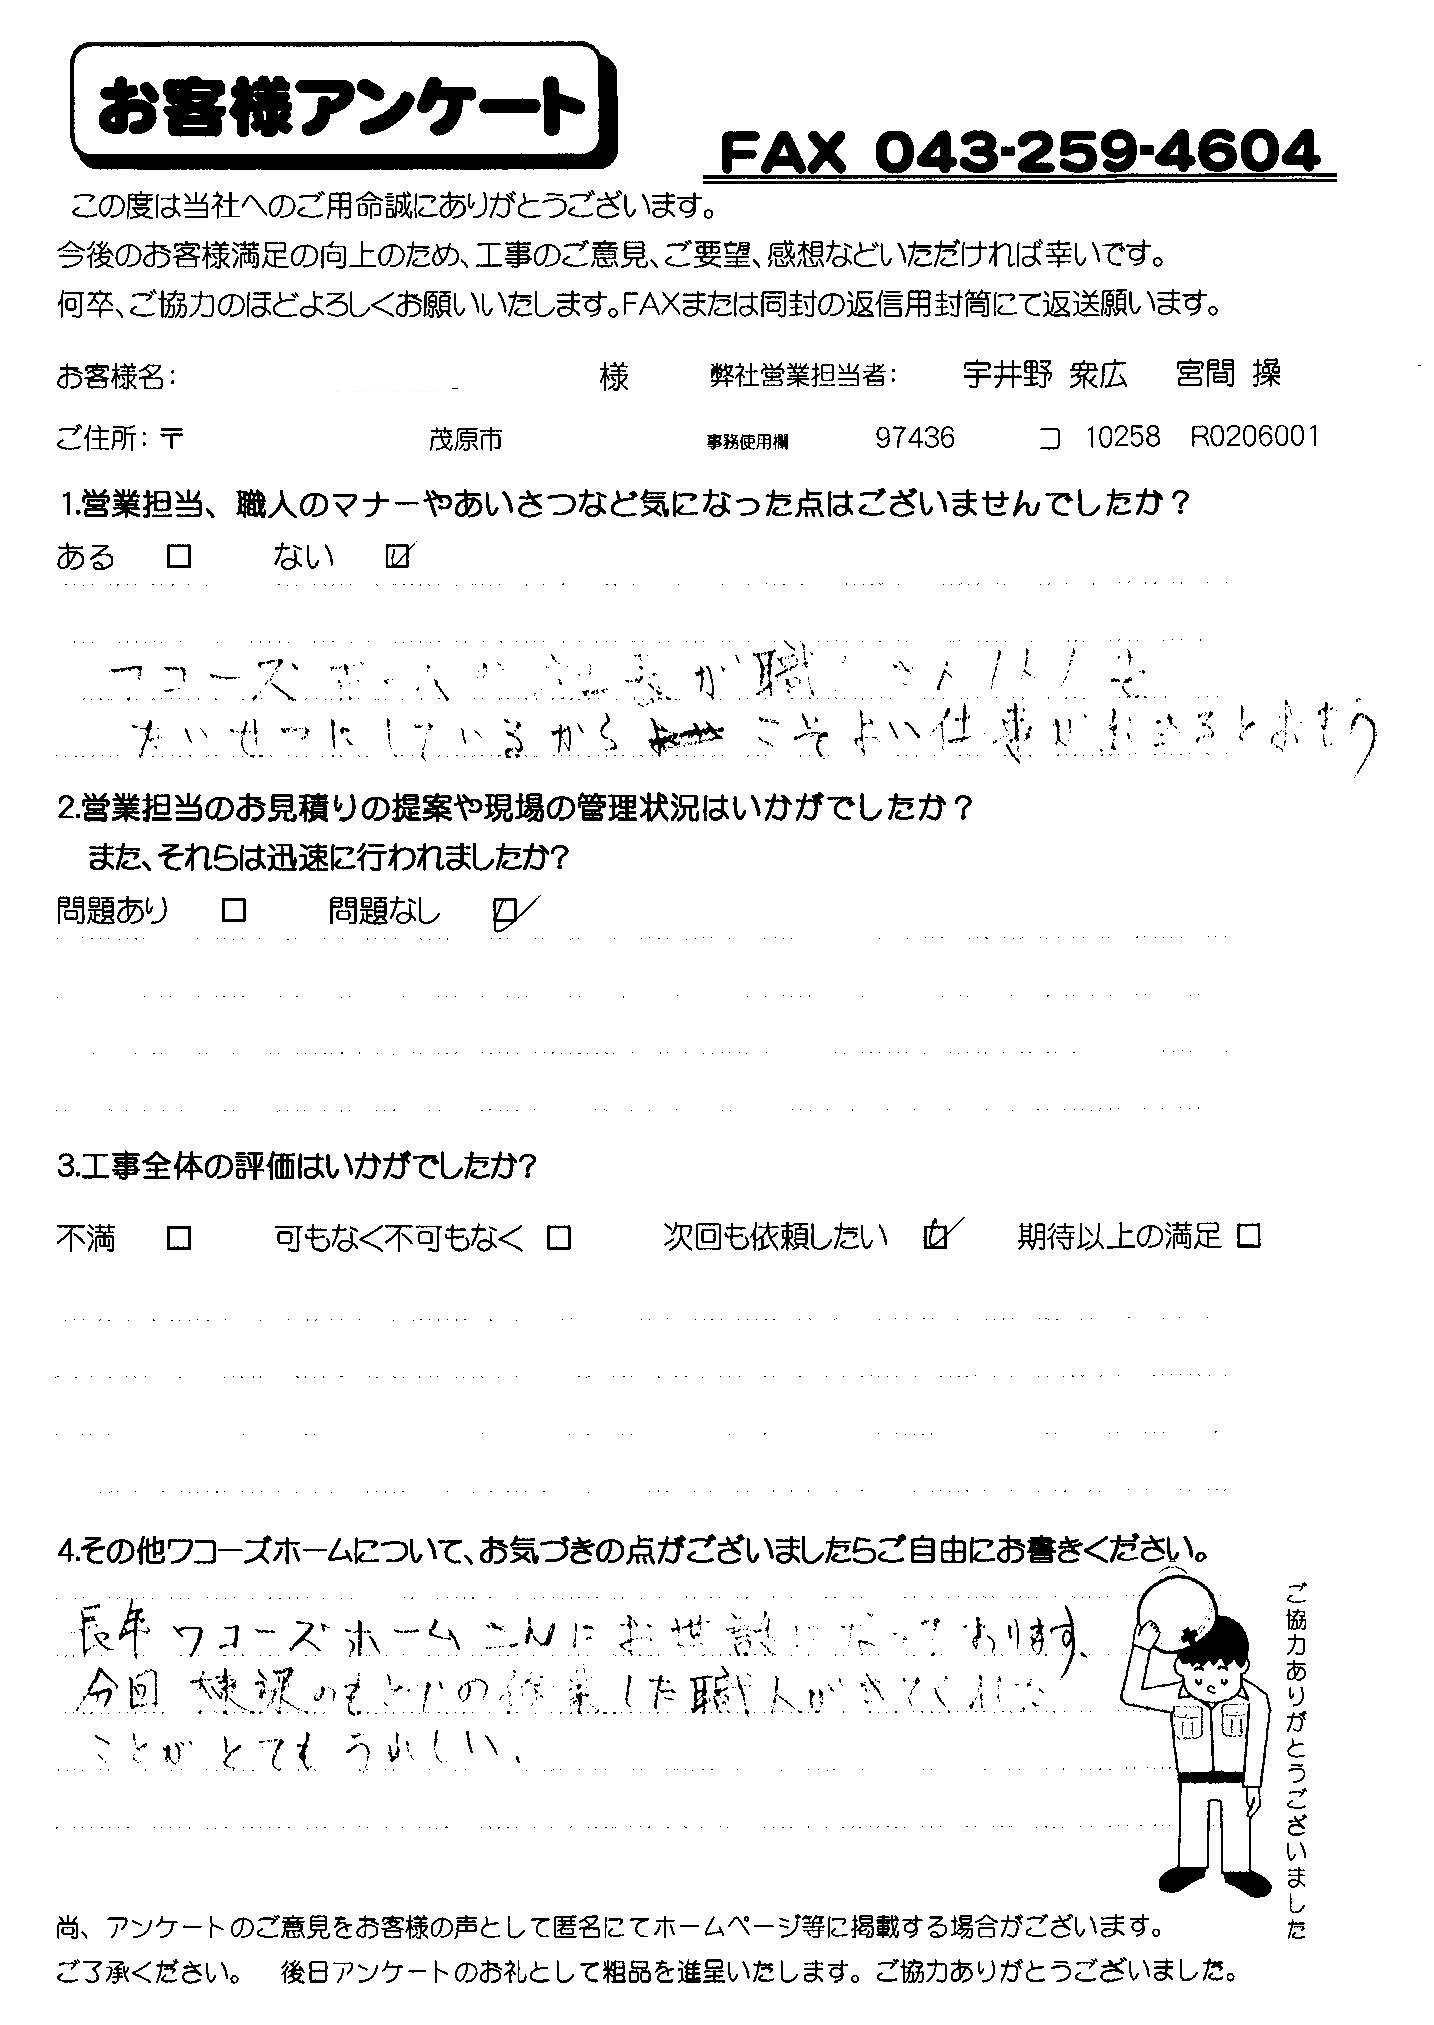 お客様アンケート
FAX 043-259-4604
この度は当社へのご用命誠にありがとうございます。
今後のお客様満足の向上のため、工事のご意見、ご要望、感想などいただければ幸いです。
何卒、ご協力のほどよろしくお願いいたします。FAXまたは同封の返信用封筒にて返送願います。
お客様名： 様 弊社営業担当者： 宇井野 衆広 宮間 操
ご住所：〒 茂原市 事務使用欄 97436 コ 10258 R0206001
1.営業担当、職人のマナーやあいさつなど気になった点はございませんでしたか？
ある □ ない ☑
ワコーズホームの 社長が職
たいせつにしているから こそよい仕事ができるとおもう
2.営業担当のお見積りの提案や現場の管理状況はいかがでしたか？
また、それらは迅速に行われましたか?
問題あり □ 問題なし ☑
3.工事全体の評価はいかがでしたか?
不満 □ 可もなく不可もなく □ 次回も依頼したい ☑ 期待以上の満足 □
4.その他ワコーズホームについて、お気づきの点がございましたらご自由にお書きください。
長年ワコーズホームさんにお世話になっております、
今回 の作業した職人がきてくれた
ことがとてもうれしい、
ご協力ありがとうございました
尚、アンケートのご意見をお客様の声として匿名にてホームページ等に掲載する場合がございます。
ご了承ください。 後日アンケートのお礼として粗品を進呈いたします。ご協力ありがとうございました。